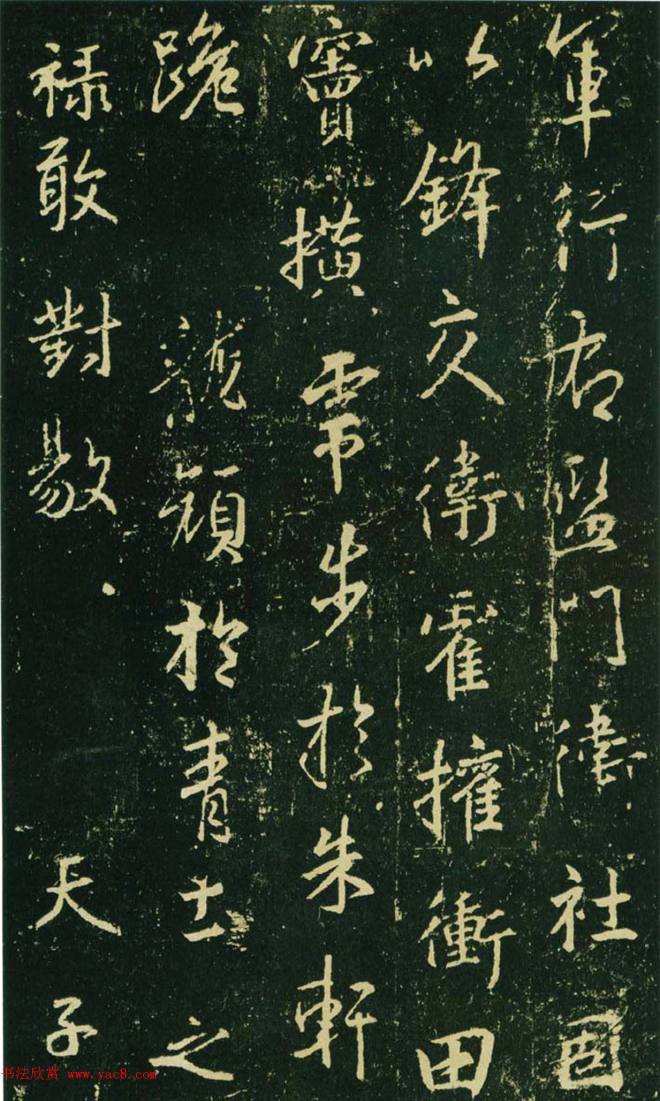 軍行右監門衛社固
以鋒交衛霍擁衝田
竇橫帶步於朱軒
跪龍於青土之
祿敢對敭天子
书法欣赏 www.yac8.com